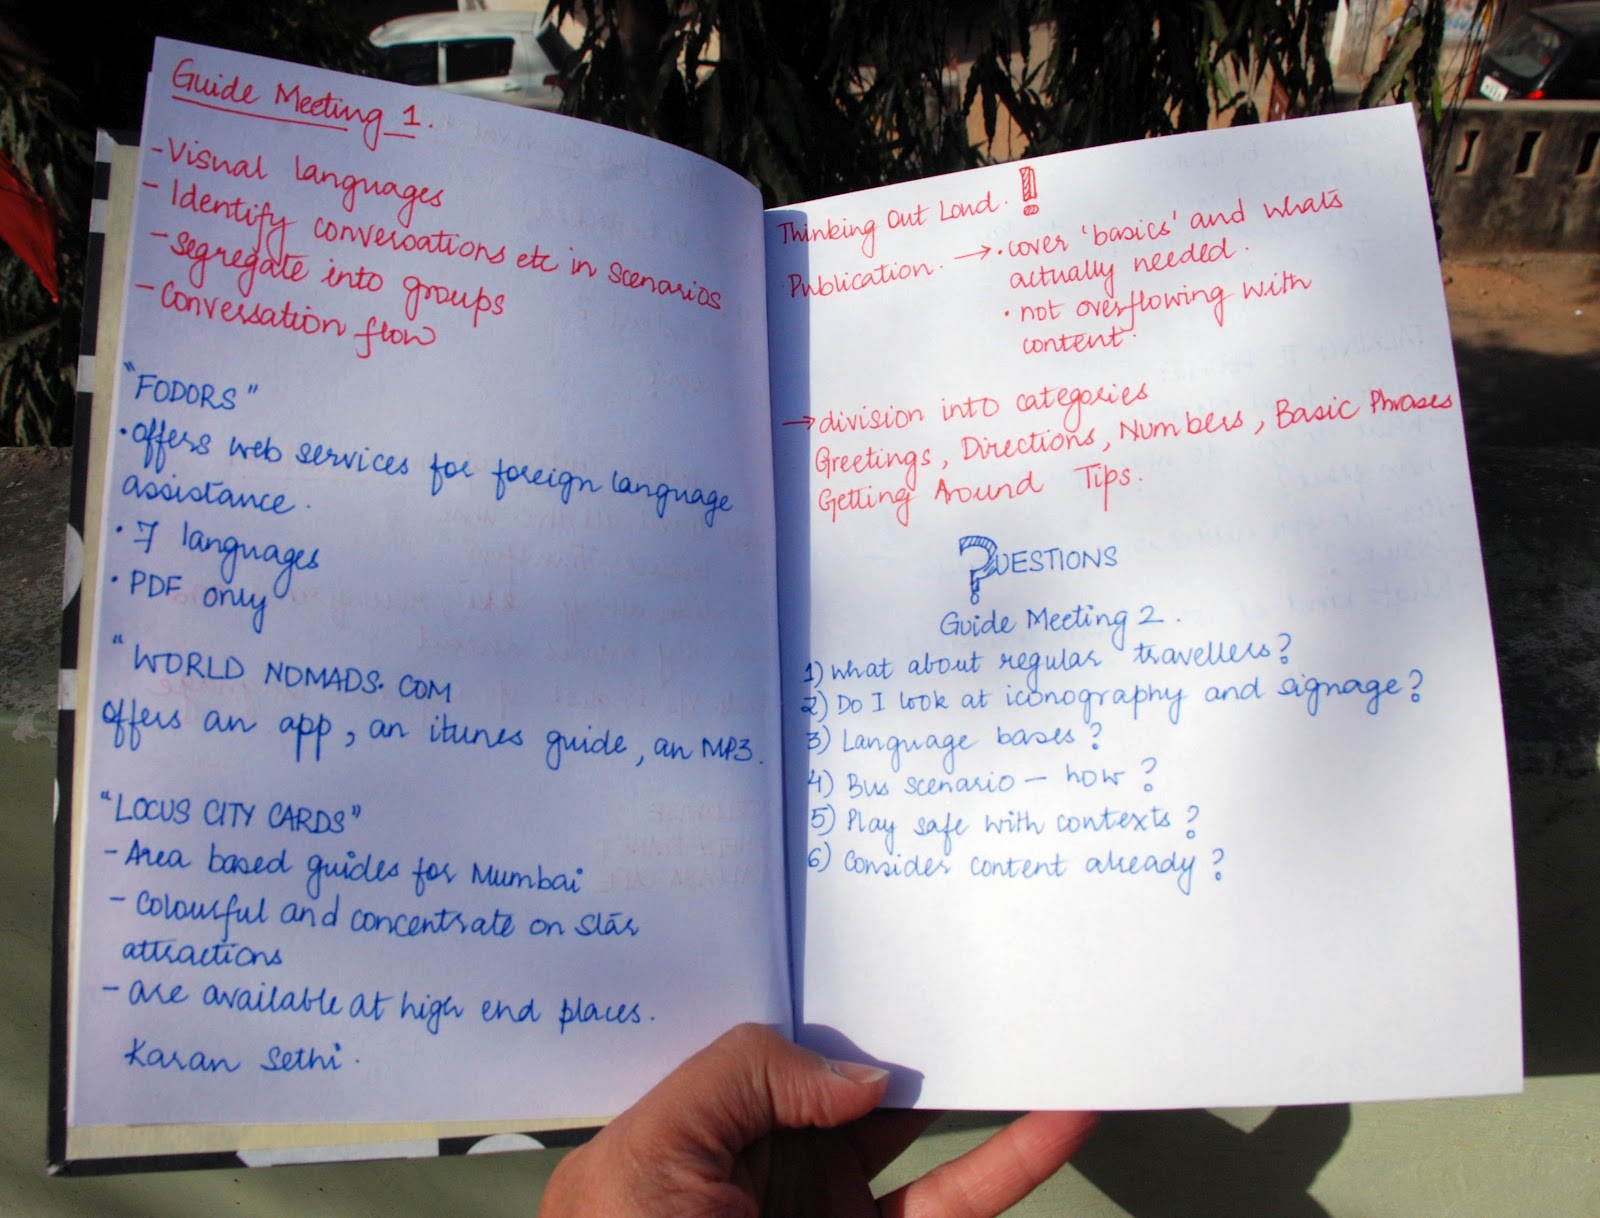 Guide Meeting 1.
- Visual languages
- Identify conversations etc in scenarios
- segregate into groups
- conversation flow
"FODORS"
• offers web services for foreign language
assistance.
• 7 languages
• PDF only
"WORLD NOMADS.COM
offers an app, an itunes guide, an MP3.
"LOCUS CITY CARDS"
- Area based guides for Mumbai
- colourful and concentrate on star
attractions
- are available at high end places.
Karan Sethi.
Thinking Out Loud. !
Publication. → • cover 'basics' and what's
actually needed.
• not overflowing with
content.
→ division into categories
Greetings, Directions, Numbers, Basic Phrases
Getting Around Tips.
?UESTIONS
Guide Meeting 2.
1) what about regular travellers?
2) Do I look at iconography and signage?
3) Language bases?
4) Bus scenario – how?
5) Play safe with contexts?
6) Consider content already?